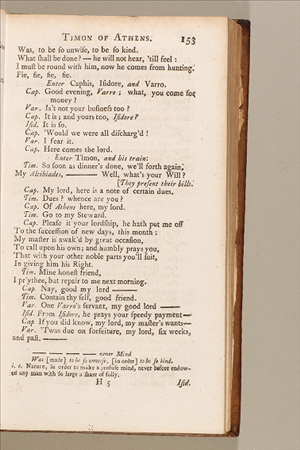 TIMON OF ATHENS. 153
Was, to be ſo unwiſe, to be ſo kind.
What ſhall be done? — he will not hear, 'till feel:
I muſt be round with him, now he comes from hunting.
Fie, fie, fie, fie.
Enter Caphis, Iſidore, and Varro.
Cap. Good evening, Varro; what, you come for
money?
Var. Is't not your buſineſs too?
Cap. It is; and yours too, Iſidore?
Iſid. It is ſo.
Cap. 'Would we were all diſcharg'd!
Var. I fear it.
Cap. Here comes the lord.
Enter Timon, and his train:
Tim. So ſoon as dinner's done, we'll forth again,
My Alcibiades, —— Well, what's your Will?
[They preſent their bills.
Cap. My lord, here is a note of certain dues.
Tim. Dues? whence are you?
Cap. Of Athens here, my lord.
Tim. Go to my Steward.
Cap. Pleaſe it your lordſhip, he hath put me off
To the ſucceſſion of new days, this month:
My maſter is awak'd by great occaſion,
To call upon his own; and humbly prays you,
That with your other noble parts you'll ſuit,
In giving him his Right.
Tim. Mine honeſt friend,
I pr'ythee, but repair to me next morning.
Cap. Nay, good my lord ——
Tim. Contain thy ſelf, good friend.
Var. One Varro's ſervant, my good lord ——
Iſid. From Iſidore, he prays your ſpeedy payment—
Cap. If you did know, my lord, my maſter's wants—
Var. 'Twas due on forfeiture, my lord, ſix weeks,
and paſt. ——
—— —— —— —— never Mind
Was [made] to be ſo unwiſe, [in order] to be ſo kind.
i. e. Nature, in order to make a profuſe mind, never before endow-
ed any man with ſo large a ſhare of folly.
H 5 Iſid.